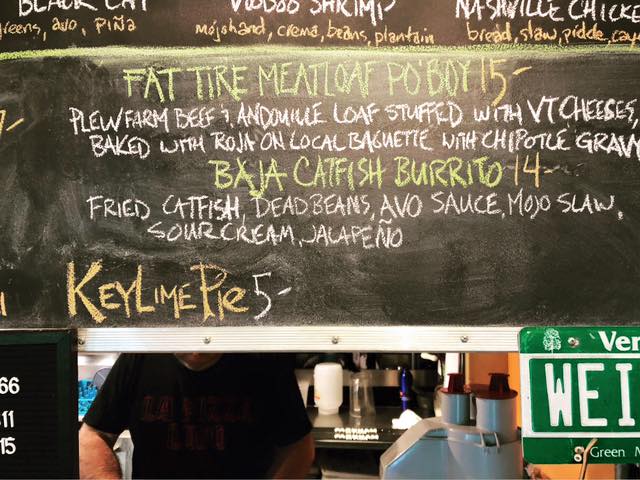 BLACK CAT VOODOO SHRIMP NASHVILLE CHICKE
greens, avo, piña mojohand, crema, beans, plantain bread, slaw, pickle, caye
FAT TIRE MEATLOAF PO'BOY 15-
PLEWFARM BEEF & ANDOUILLE LOAF STUFFED WITH VT CHEESES,
BAKED WITH ROJA ON LOCAL BAGUETTE WITH CHIPOTLE GRAVY
BAJA CATFISH BURRITO 14-
FRIED CATFISH, DEADBEANS, AVO SAUCE, MOJO SLAW,
SOUR CREAM, JALAPEÑO
KEY LIME PIE 5-
66
11
15
Ver
WEI
Green M